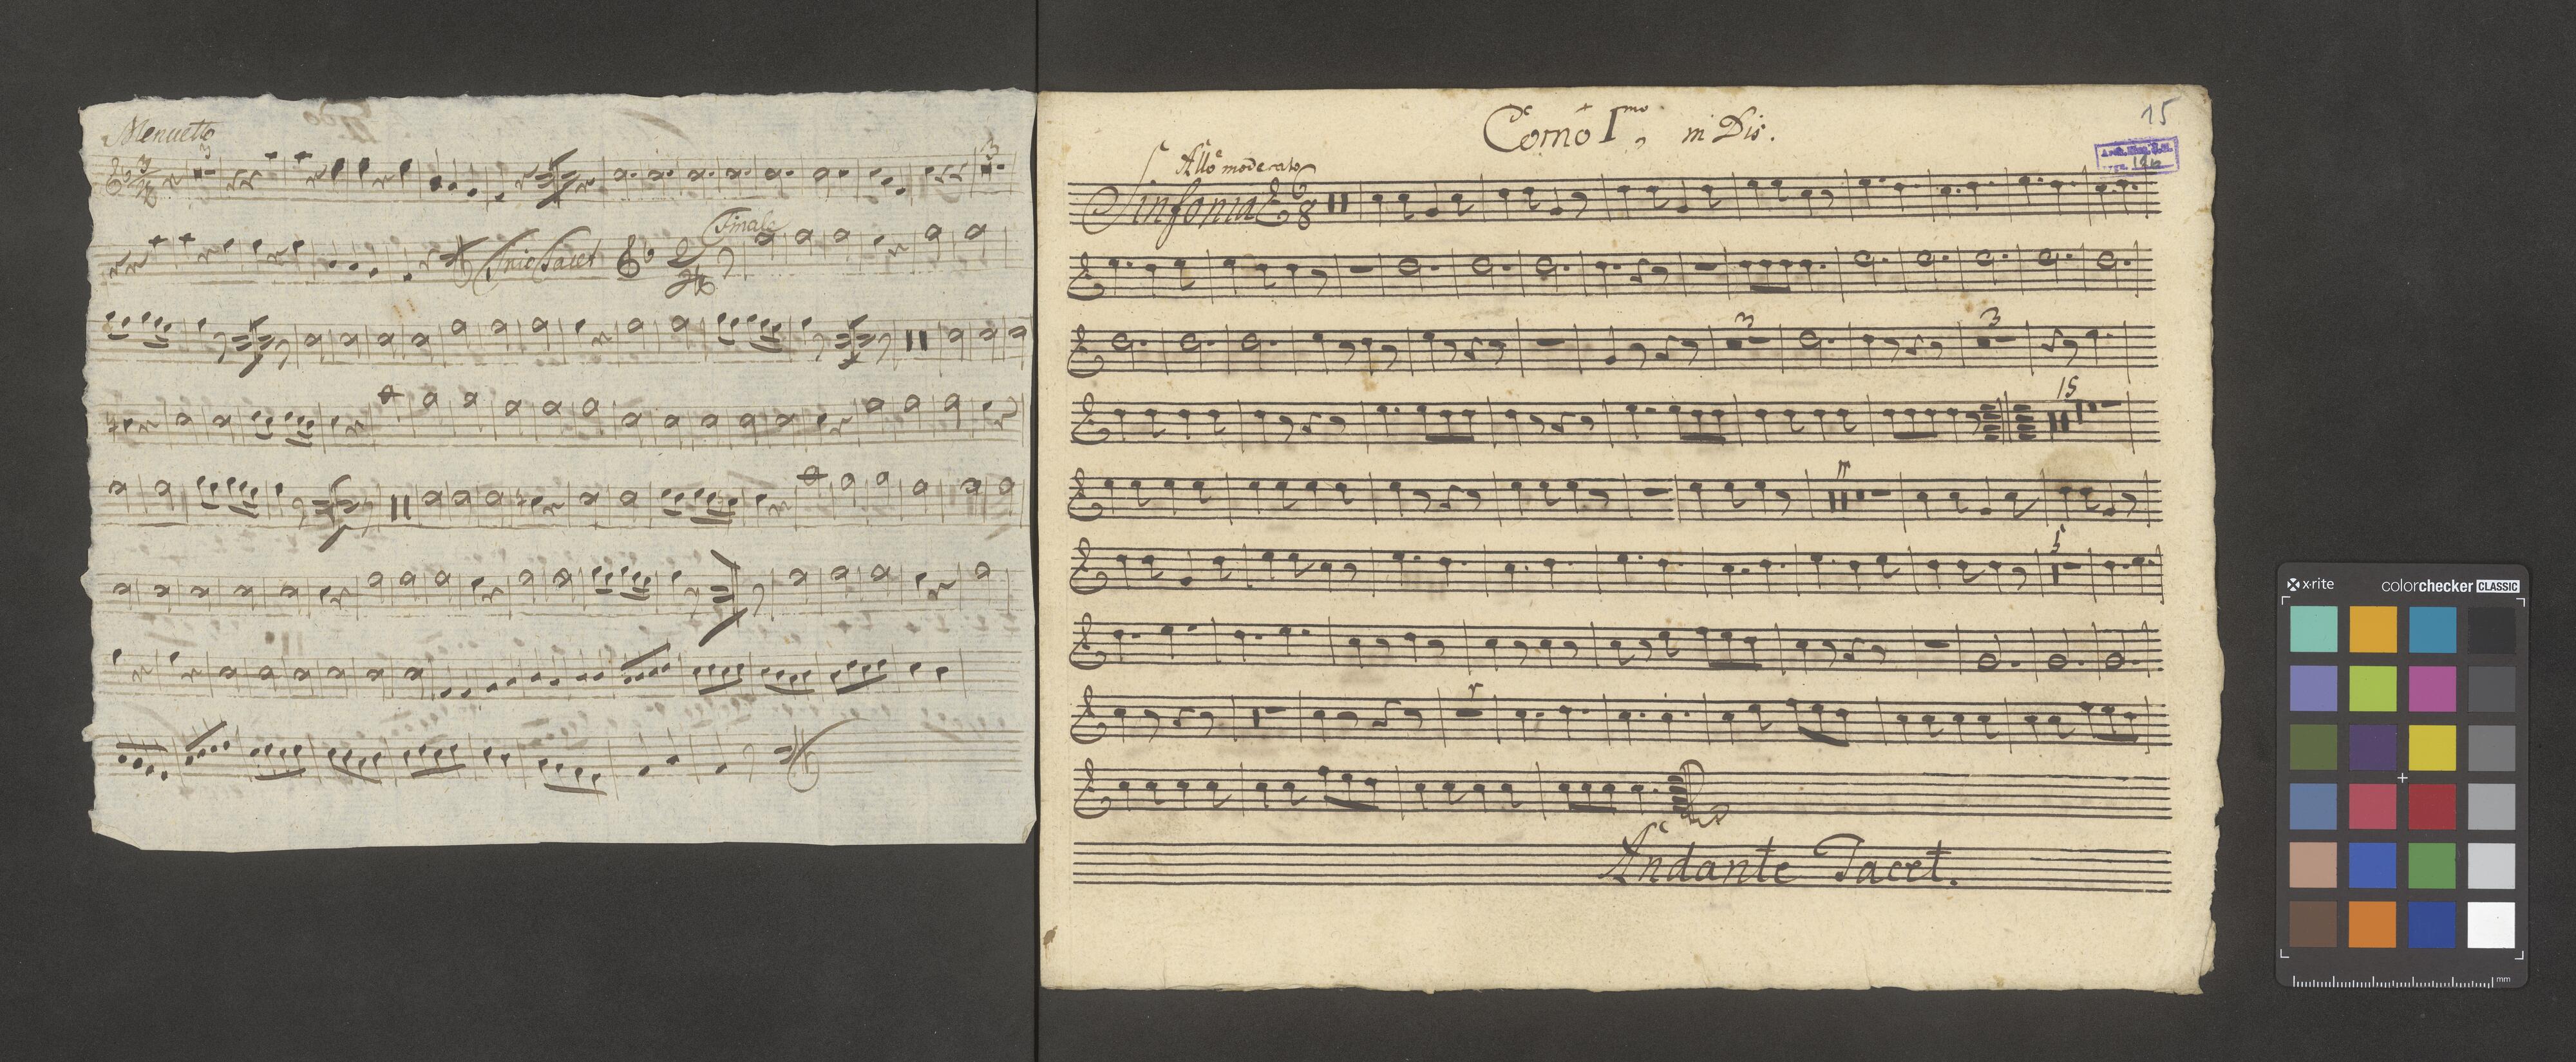 Menuetto
3
3
Finale
Trio Tacet
Corno I^mo, in Dis.
15
All° moderato
Sinfonia
6
8
3
3
15
5
Andante Tacet.
x-rite
colorchecker CLASSIC
mm